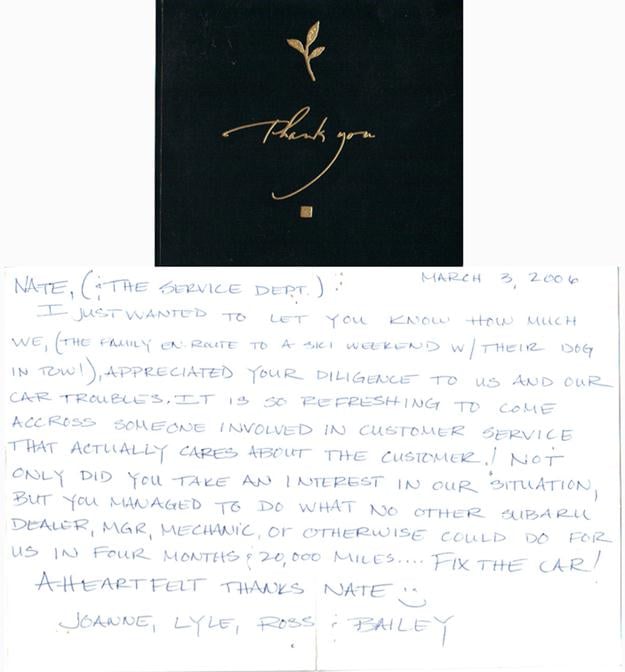 Thank you
MARCH 3, 2006
NATE, (& THE SERVICE DEPT.):
I JUST WANTED TO LET YOU KNOW HOW MUCH
WE, (THE FAMILY EN ROUTE TO A SKI WEEKEND W/ THEIR DOG
IN TOW!), APPRECIATED YOUR DILIGENCE TO US AND OUR
CAR TROUBLES. IT IS SO REFRESHING TO COME
ACCROSS SOMEONE INVOLVED IN CUSTOMER SERVICE
THAT ACTUALLY CARES ABOUT THE CUSTOMER! NOT
ONLY DID YOU TAKE AN INTEREST IN OUR SITUATION,
BUT YOU MANAGED TO DO WHAT NO OTHER SUBARU
DEALER, MGR, MECHANIC, OR OTHERWISE COULD DO FOR
US IN FOUR MONTHS & 20,000 MILES.... FIX THE CAR!
A HEARTFELT THANKS NATE :)
JOANNE, LYLE, ROSS & BAILEY